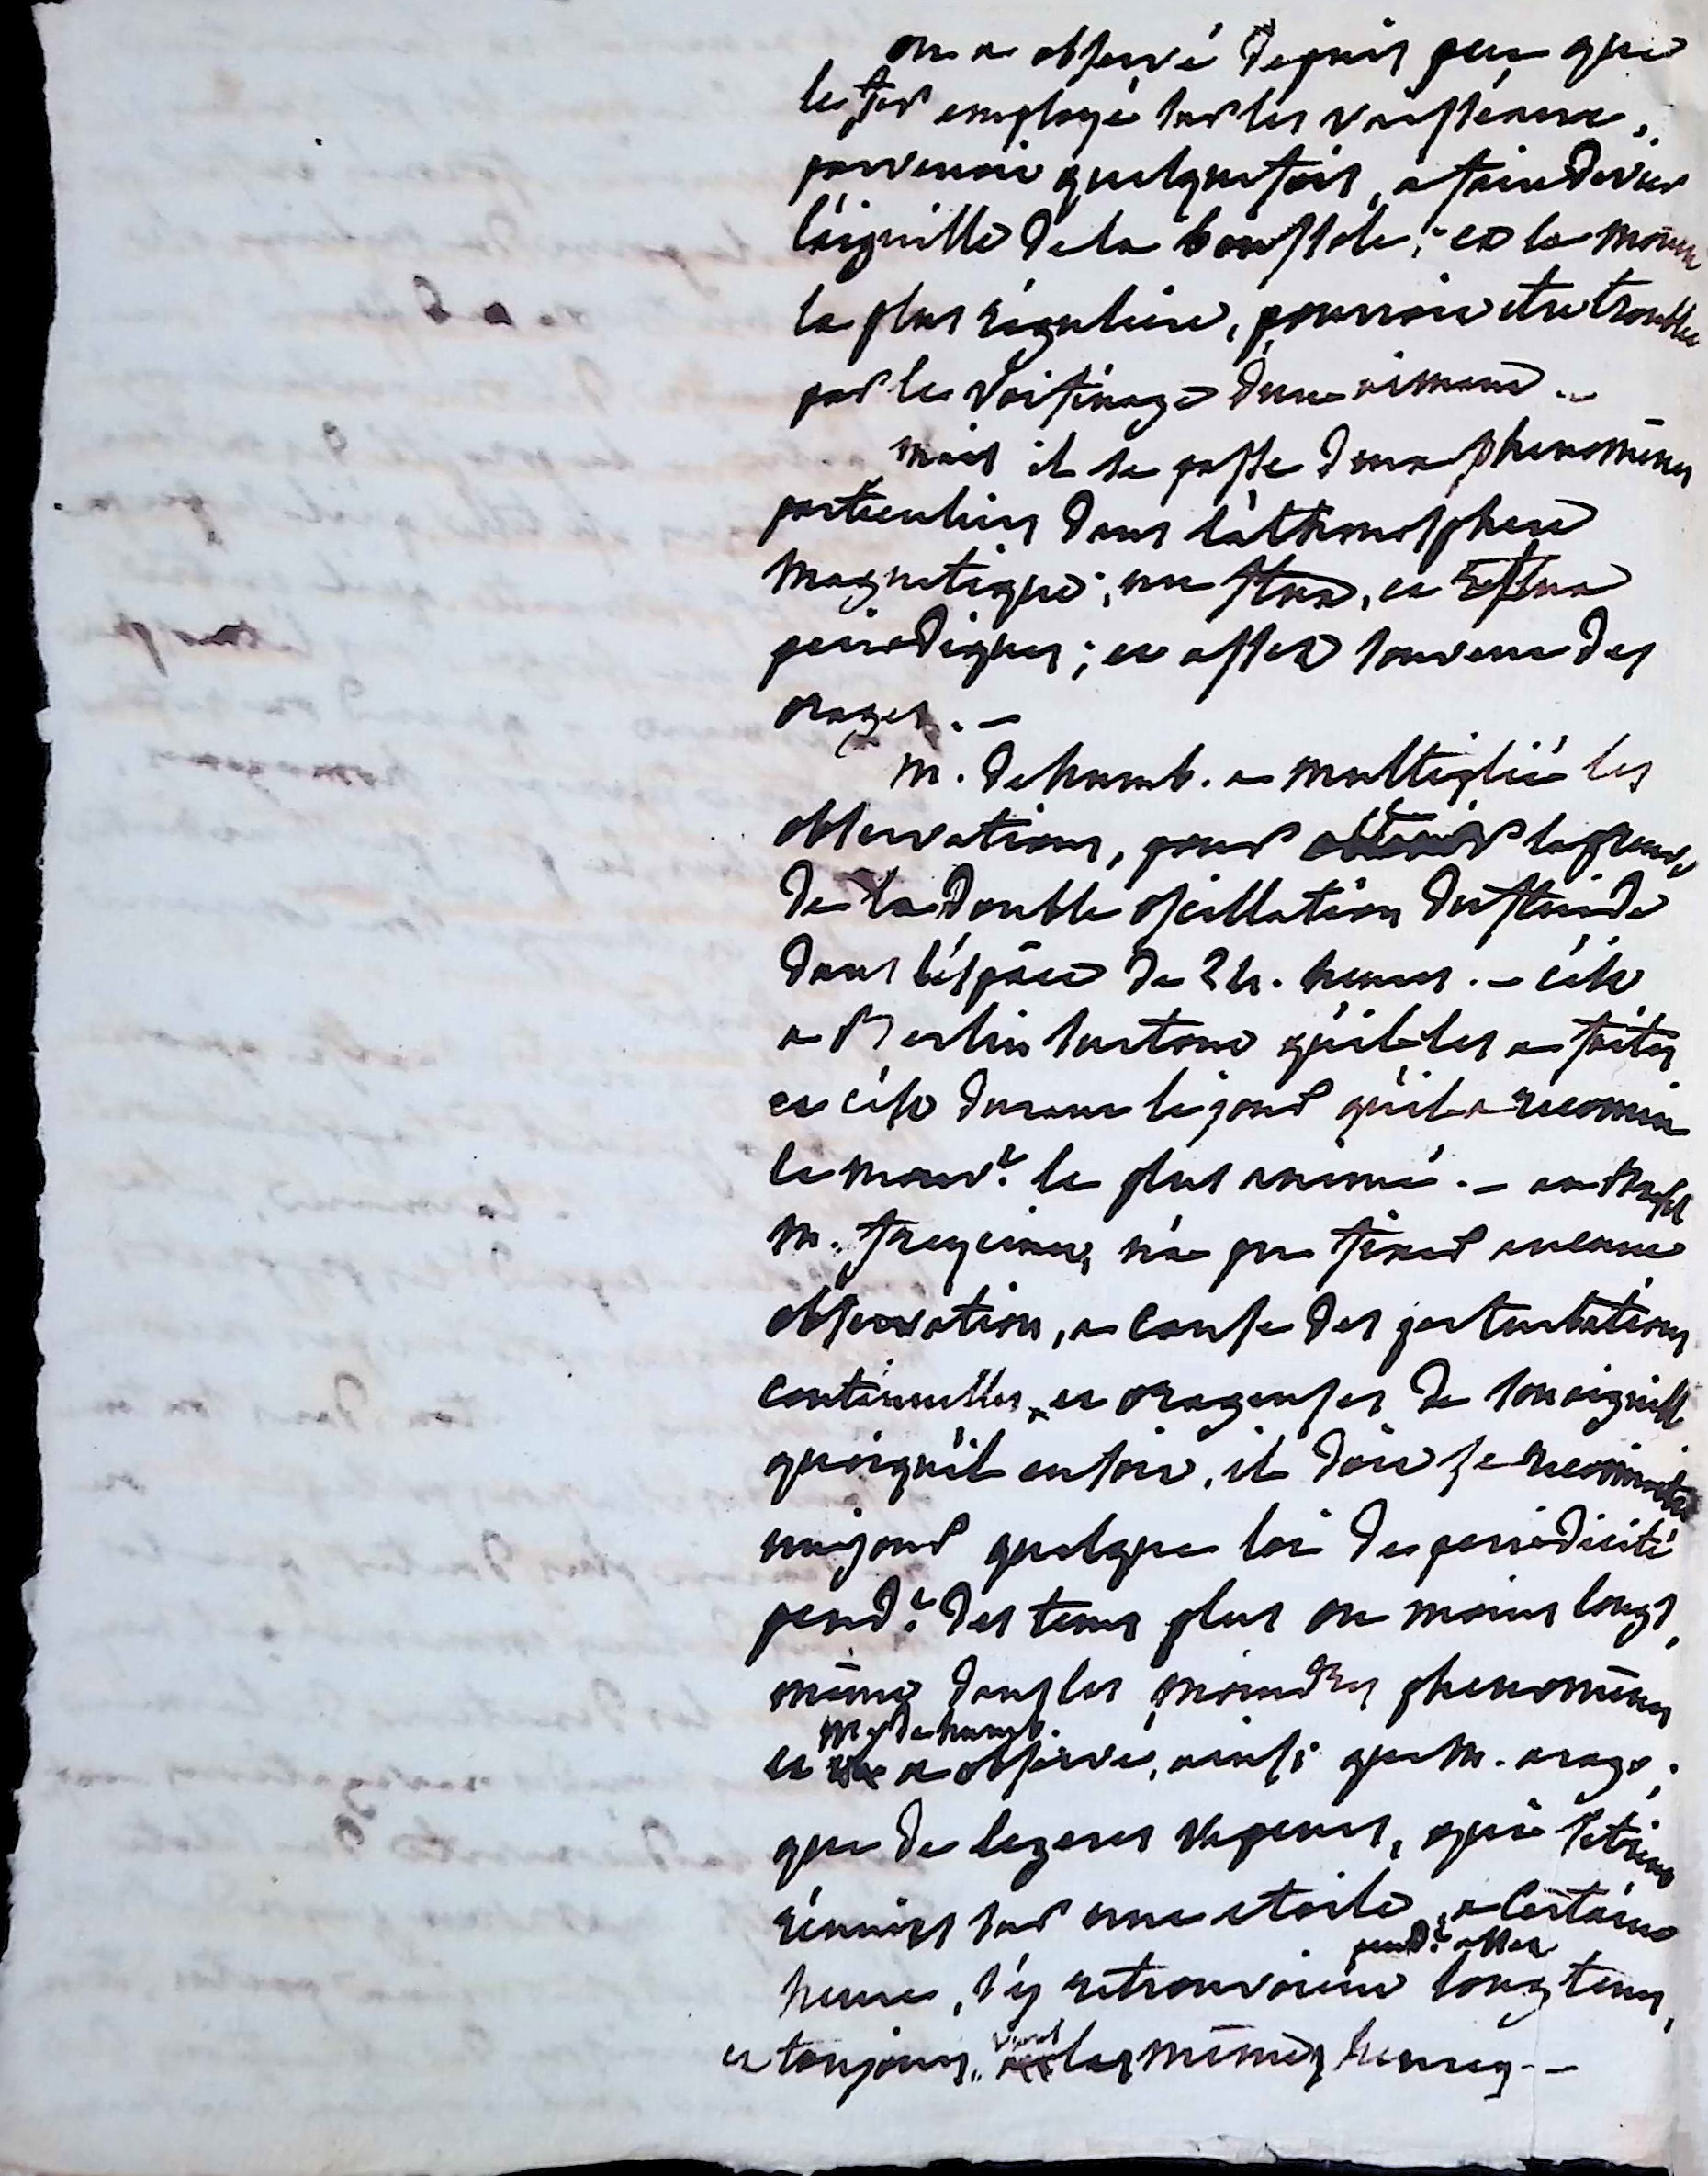 on a observé depuis peu que
le fer employé sur les vaisseaux,
parvenoit quelquefois, a faire devier
l'aiguille de la boussole; et la montre
la plus réguliere, pourroit etre troublée
par le voisinage d'un aimant. -
mais il se passe deux phenomènes
particuliers dans l'athmosphere
magnetique; un flux, et reflux
periodiques; et assez souvent des
orages. -
M. de humb. a multiplié les
observations, pour obtenir la preuve
de la double oscillation du fluide
dans l'éspace de 24. heures. - c'est
a Berlin surtout qu'il les a faites
et c'est durant le jour qu'il a reconnu
le mouvt. le plus animé. - au Bresil
M. freycinet, n'a pu fixer aucune
observation, a cause des perturbations
continuelles, et orageuses de son aiguille
quoiqu'il en soit, il doit se reconnoitre
un jour quelque loi de periodicité
pendt. des tems plus ou moins longs,
même dans les moindres phenomènes
M. de humb.
et a observé, ainsi que M. arago,
que de legeres vapeurs, qui s'étoient
réunies sur une etoile, a certaine
pendt. assez
heure, s'y retrouvoient longtems,
vers
et toujours, les mêmes heures. -